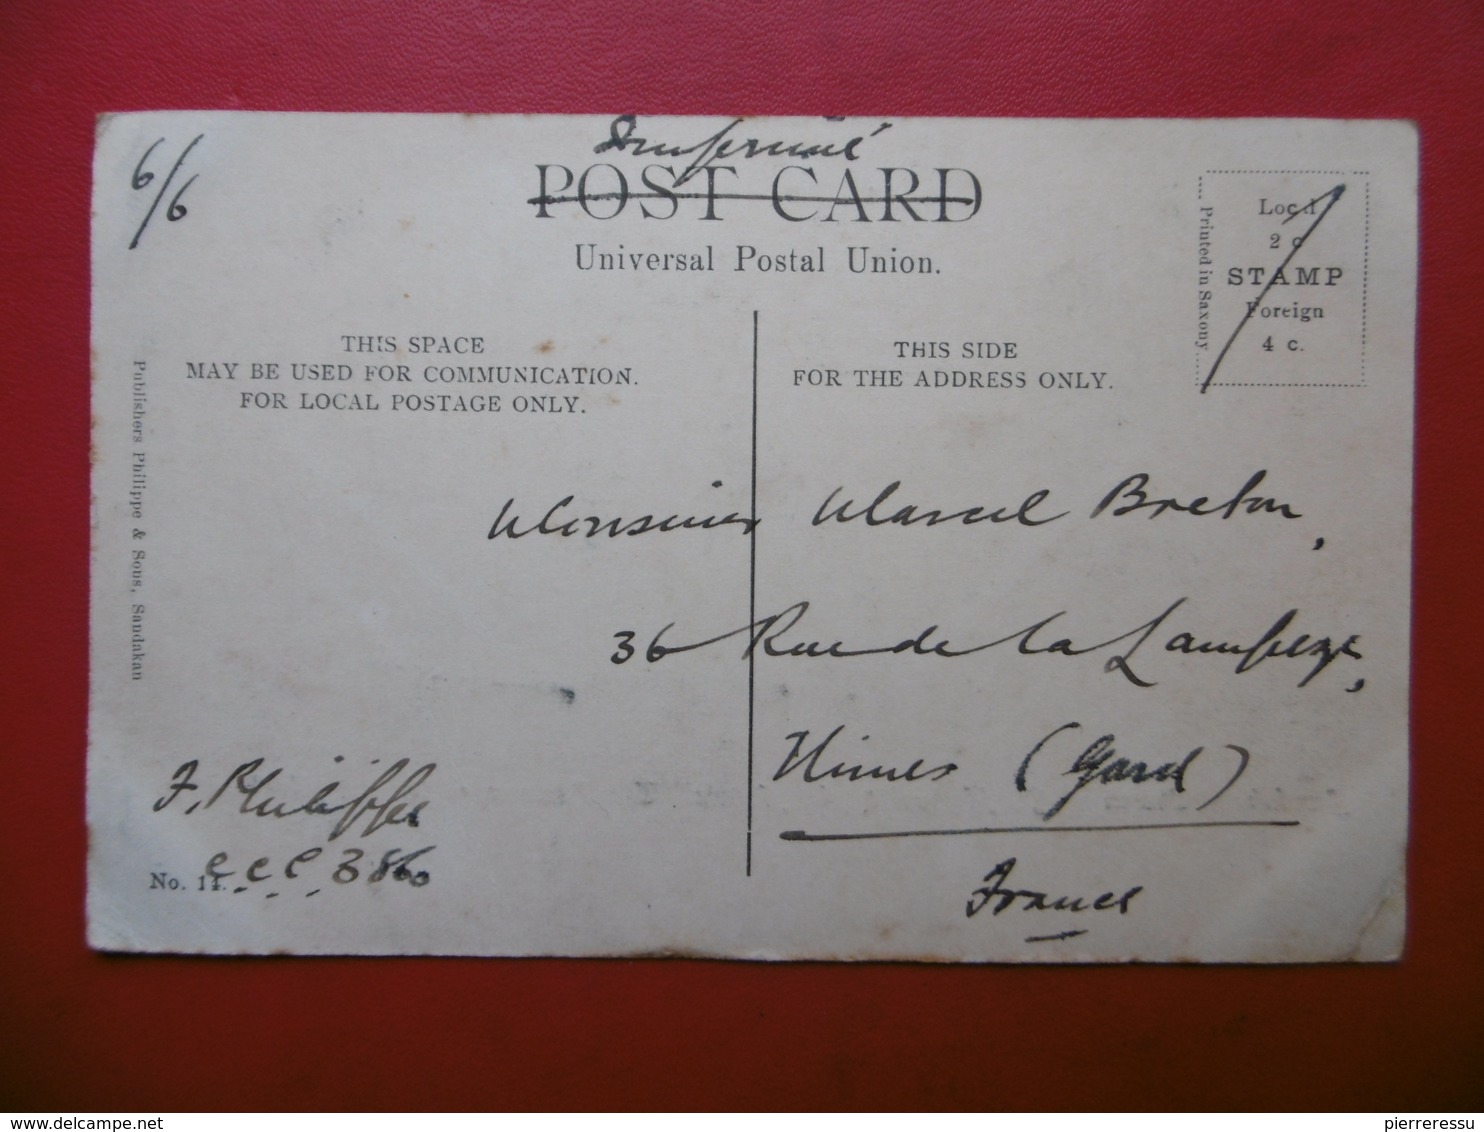 6/6
Imprimé
POST CARD
Universal Postal Union.
Local
2 c
STAMP
Foreign
4 c.
Printed in Saxony.
THIS SPACE
MAY BE USED FOR COMMUNICATION.
FOR LOCAL POSTAGE ONLY.
THIS SIDE
FOR THE ADDRESS ONLY.
Publishers Philippe & Sons, Sandakan
Monsieur Marcel Breton,
36 Rue de la Lampèze,
Nimes (Gard)
France
F. Philippe
C. C. C. 3860
No. 14.
delcampe.net
pierreressu